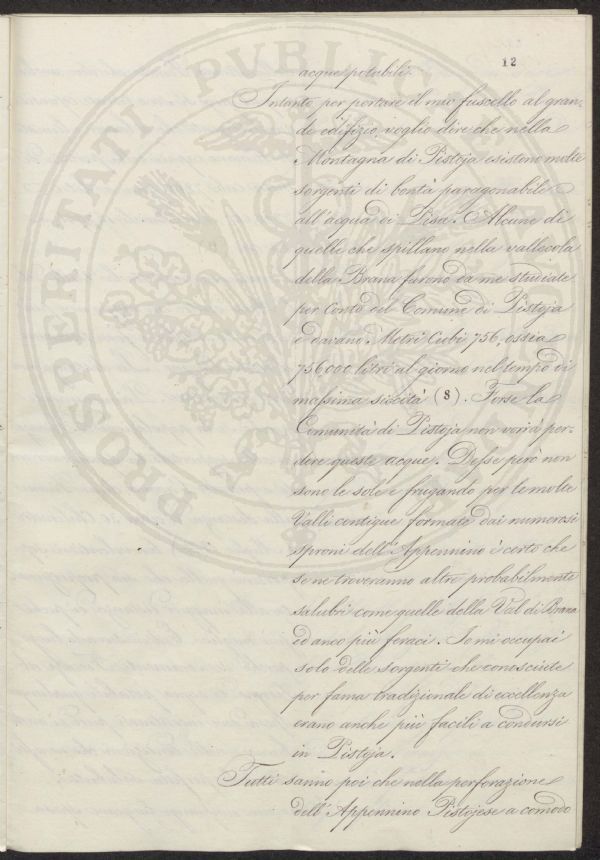 12
acque potabili.
Intanto per portare il mio fuscello al gran-
de edifizio voglio dire che nella
Montagna di Pistoja esistono molte
sorgenti di bontà paragonabile
all'acqua di Pisa. Alcune di
quelle che spillano nella vallecola
della Brana furono da me studiate
per Conto del Comune di Pistoja
e davano Metri Cubi 756, ossia
756000 litri al giorno nel tempo di
massima siccità (8). Forse la
Comunità di Pistoja non vorrà per-
dere queste acque. Desse però non
sono le sole e frugando per le molte
Valli contigue formate dai numerosi
sproni dell'Appennino è certo che
se ne troveranno altre probabilmente
salubri come quelle della Val di Brana
ed anco più feraci. Io mi occupai
solo delle sorgenti che conosciute
per fama tradizionale di eccellenza
erano anche più facili a condursi
in Pistoja.
Tutti sanno poi che nella perforazione
dell'Appennino Pistojese a comodo
PROSPERITATI PVBLICAE